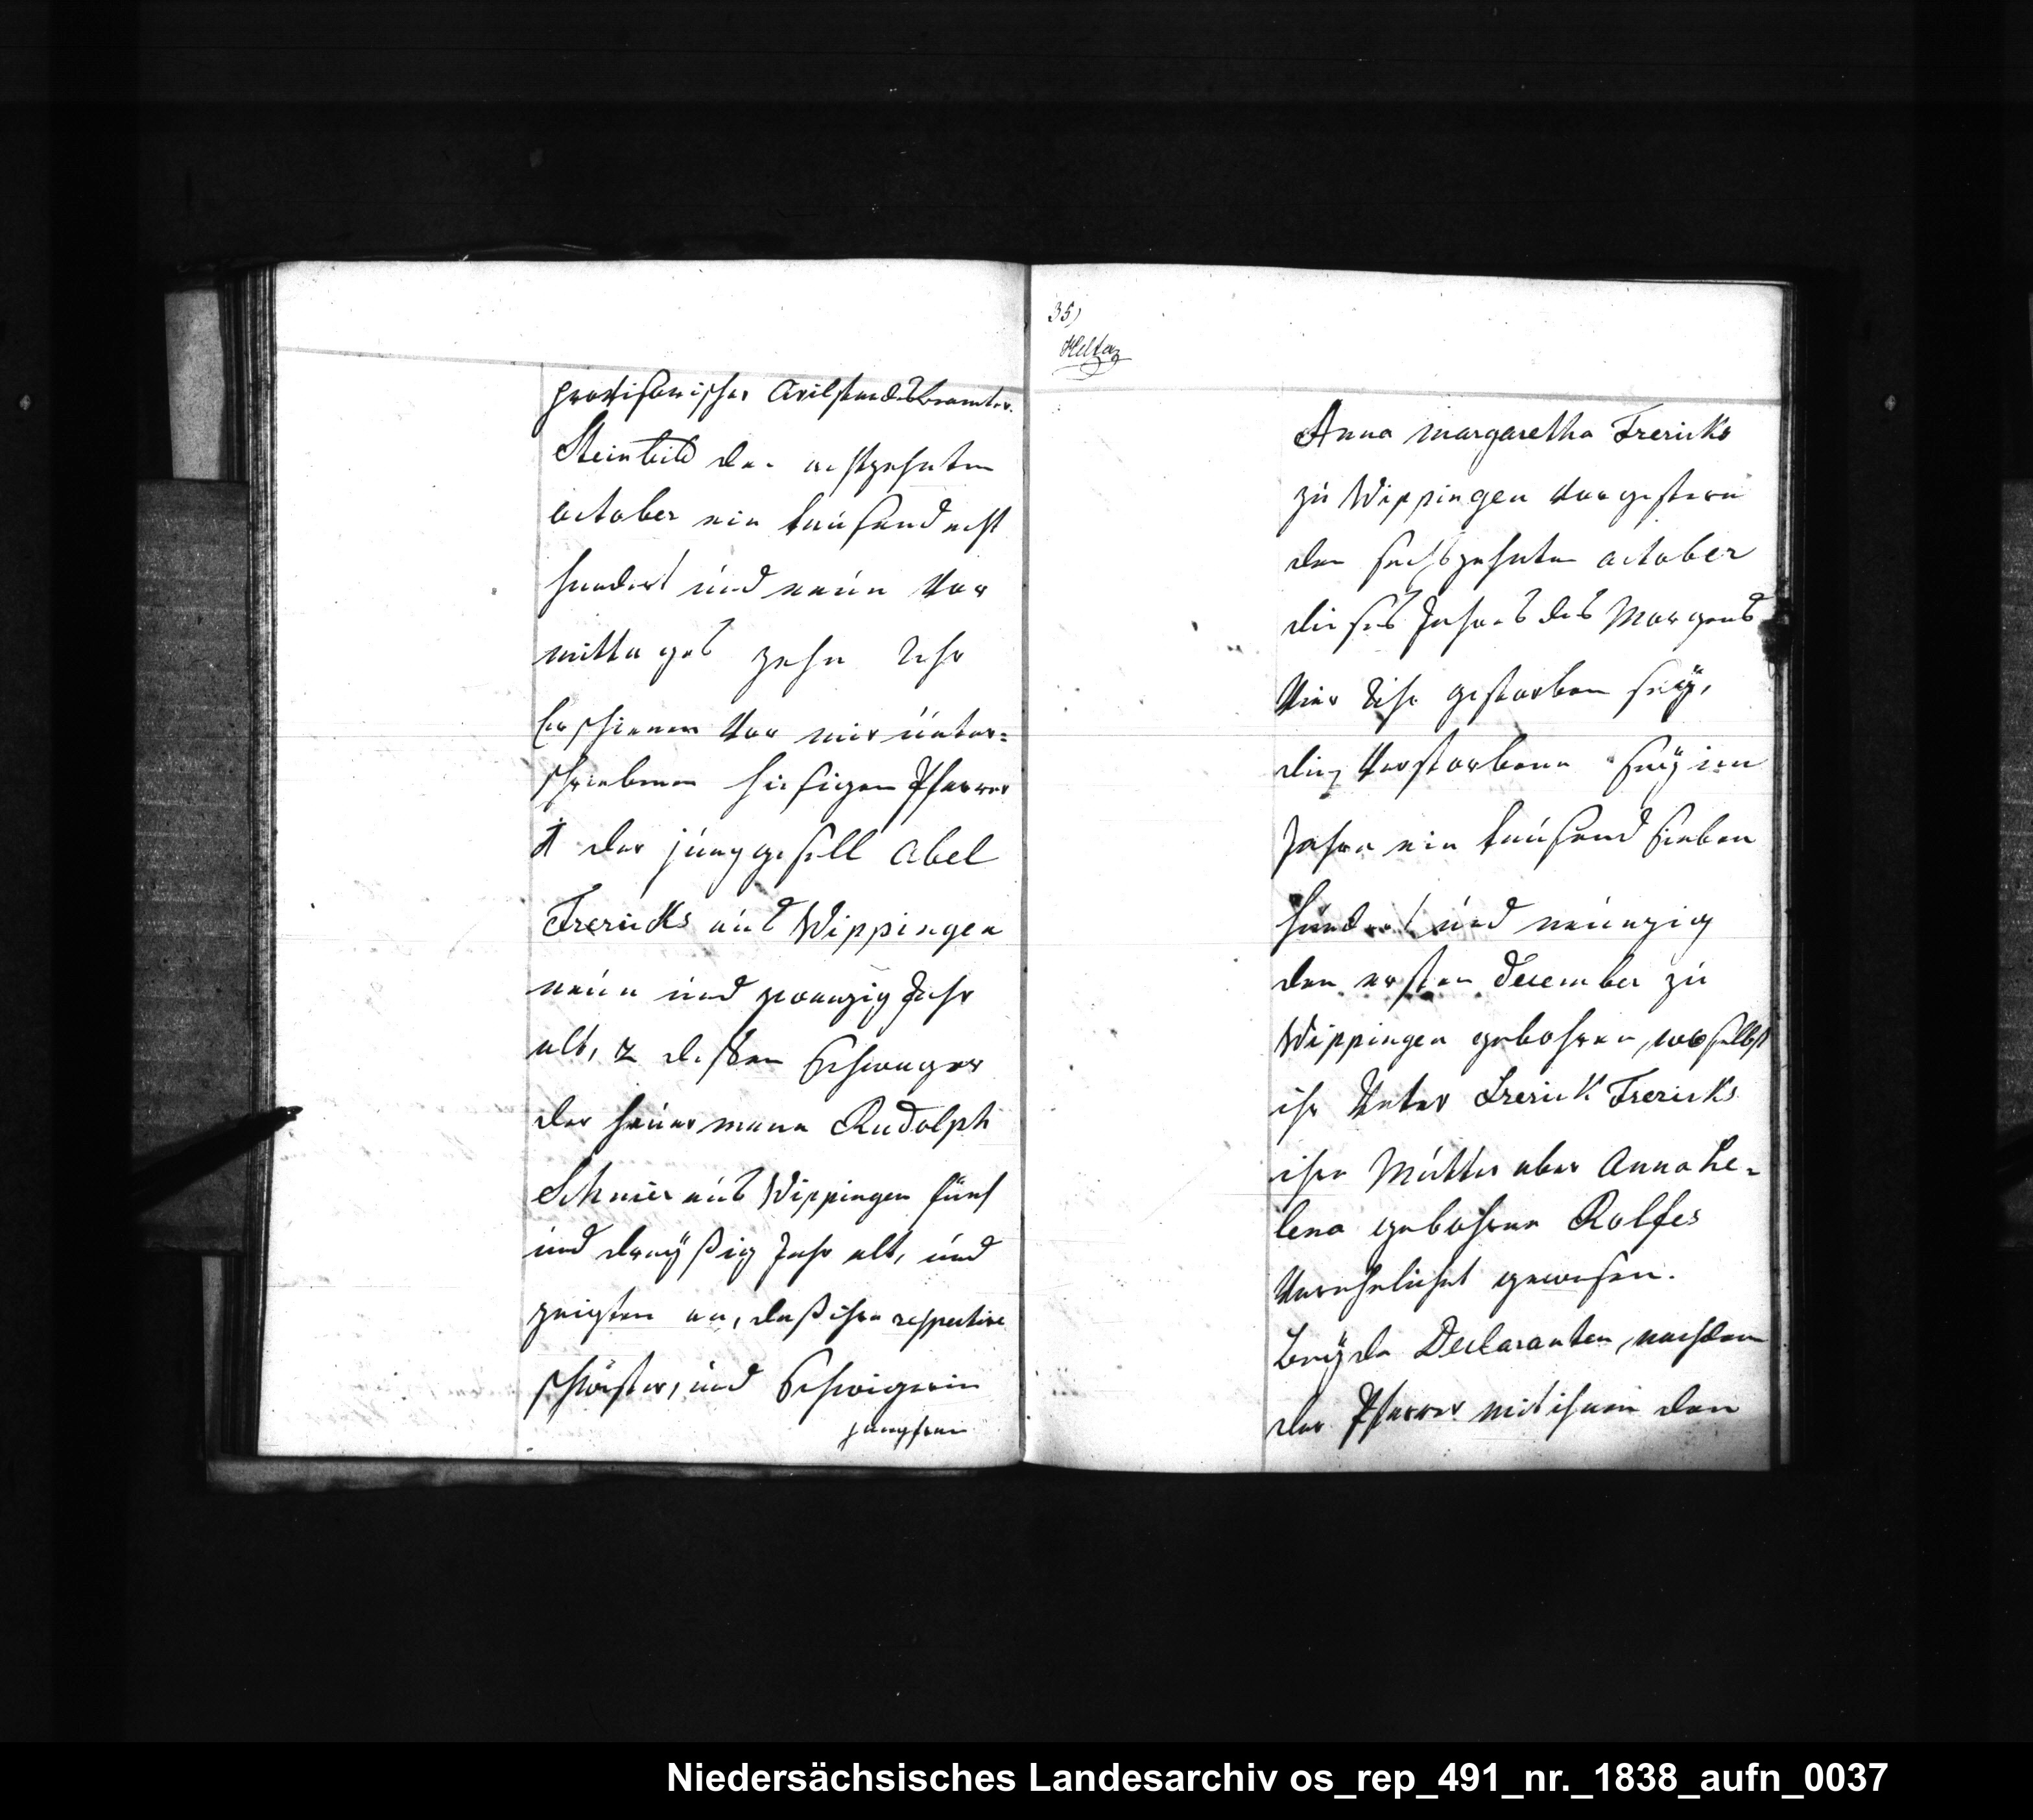 provisorischer Civilstandsbeamter.
Steinbild den achtzehnten
october ein tausend acht
hundert und neun Vor
mittages zehn Uhr
Erschienen Vor mir unter=
schriebenen hiesigen Pfarrer
1 der junggesell Abel
Frericks aus Wippingen
neun und zwanzig Jahr
alt, 2 dessen Schwager
der heuermann Rudolph
Schnier aus Wippingen fünf
und dreyßig Jahr alt, und
zeigten an, daß ihre respective
schwester, und Schwigerin
jungfrau
35)
Anna margaretha Frericks
zu Wippingen Vorgestern
den sechszehnten october
dieses Jahres des Morgens
Vier Uhr gestorben seÿ,
die Verstorbene seÿ im
Jahre ein tausend sieben
hundert und neunzig
den ersten December zu
Wippingen gebohren, woselbst
ihr Vater Frerick Frericks
ihre Mutter aber Anna He-
lena gebohrne Rolfes
Verehelicht gewesen.
Beÿde Declaranten, nachdem
der Pfarrer mit ihnen den
Niedersächsisches Landesarchiv os_rep_491_nr._1838_aufn_0037